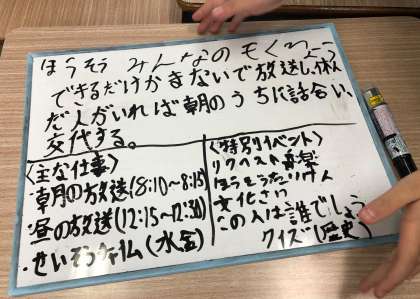 ほうそう みんなのもくひょう
できるだけかまないで放送し、休ん
だ人がいれば朝のうちに話合い、
交代する。
〈主な仕事〉
・朝の放送(8:10~8:15)
・昼の放送(12:15~12:30)
・せいそう(水金)
〈特別イベント〉
リクエスト音楽
文化さい
この人は誰でしょう
クイズ(歴史)